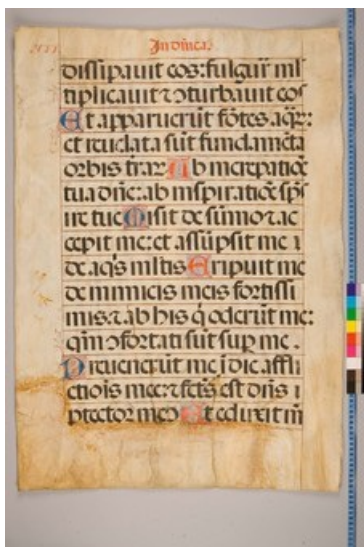 In dñica.
dissipauit eos: fulgur̃ ml̃
tiplicauit ⁊ ↄturbauit eos
Et apparuerũt fõtes aqr̃:
et reuelata sũt fundamẽta
orbis trar̃ Ab increpatiõe
tua dñe: ab inspiratiõe sp̃s
ire tue Misit de sũmo ⁊ ac
cepit me: et assũpsit me ĩ
de aq̃s ml̃tis Eripuit me
de inimicis meis fortissi
mis: ⁊ ab his q̃ oderũt me:
qm̃ ↄfortati sũt sup me.
Preuenerũt me ĩ die affli
ctiõis mee: ⁊ fct̃s est dñs ĩ
ptector meꝰ Et eduxit m̃